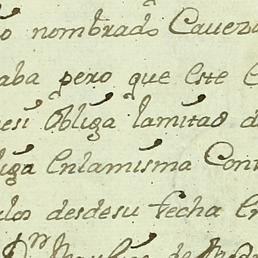 nombrado Caveza
aba pero que este
esi obliga lamitad d
liga enlamisma Con
los desdesu fecha en